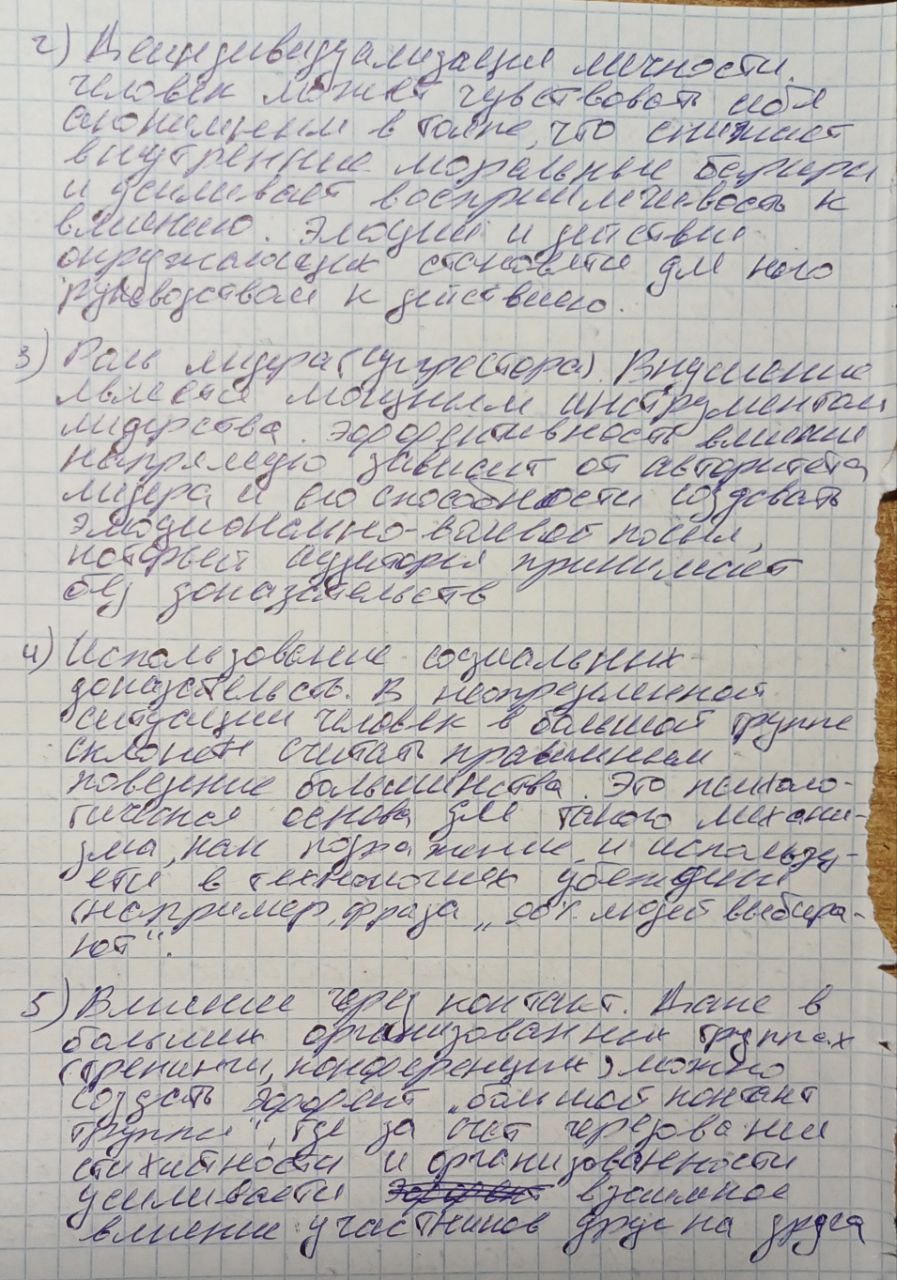 2) Деиндивидуализация личности.
человек может чувствовать себя
анонимным в толпе, что снижает
внутренние моральные барьеры
и усиливает восприимчивость к
влиянию. Эмоции и действия
окружающих становятся для него
руководством к действию.
3) Роль лидера (суггестора). Внушение
является мощным инструментом
лидерства. Эффективность влияния
напрямую зависит от авторитета
лидера и его способности создавать
эмоционально-волевой посыл,
который аудитория принимает
без доказательств
4) Использование социальных
доказательств. В неопределенной
ситуации человек в большой группе
склонен считать правильным
поведение большинства. Это психоло-
гическая основа для такого механи-
зма, как подражание, и использу-
ется в технологиях убеждения
(например, фраза „90% людей выбира-
ют“.
5) Влияние через контакт. Даже в
больших организованных группах
(тренинги, конференции) можно
создать эффект „большой контакт
группы“, где за счет чередования
стихийности и организованности
усиливается взаимное
влияние участников друг на друга